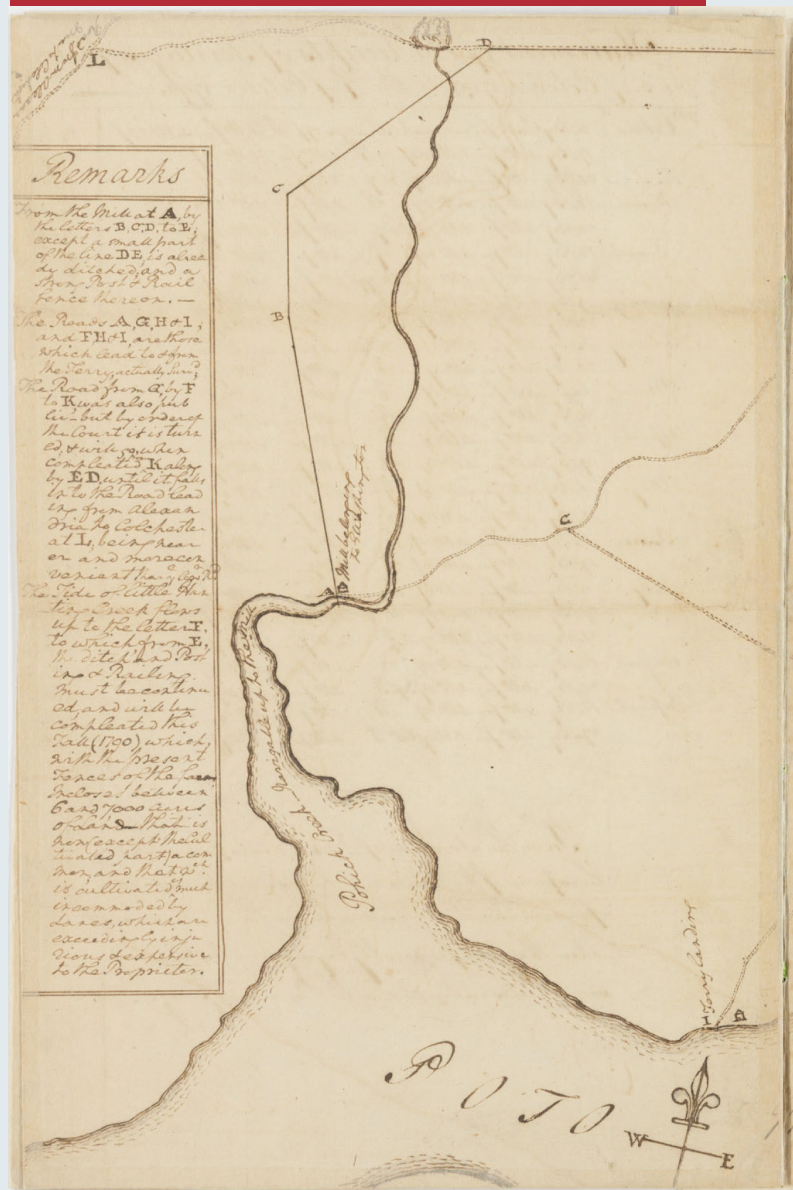 L
D
C
B
G
Remarks
From the Mill at A, by
the letters B, C, D, to E;
except a small part
of the line DE, is alrea
dy ditched, and a
strong Post & Rail
fence thereon. —
The Roads A, G, H & I,
and F H & I, are those
which lead to & from
the Ferry, actually Survd;
The Road from G, by F
to K was also pub
lic - but by order of
the Court it is turn
ed, & will go, when
compleated K along
by E D, until it falls
into the Road lead
ing from Alexan
dria to Colchester
at L; being near
er and more con
venient than
The Tide of little Hun
ting Creek flows
up to the letter F,
to which from E,
the ditch and Post
ing & Railing
must be continu
ed, and will be
compleated this
Fall (1790) which,
with the present
Fences of the farms
Incloses between
6 and 7000 acres
of Land that is
now (except the cul
tivated part) a com
mon, and that wch
is cultivated much
incommoded by
Lanes, which are
exceedingly inju
rious & expensive
to the Proprietor.
Mill belonging
to G Washington
A
Navigable up to the Mill
Pohick
Ferry landing
H
POTO
W
E